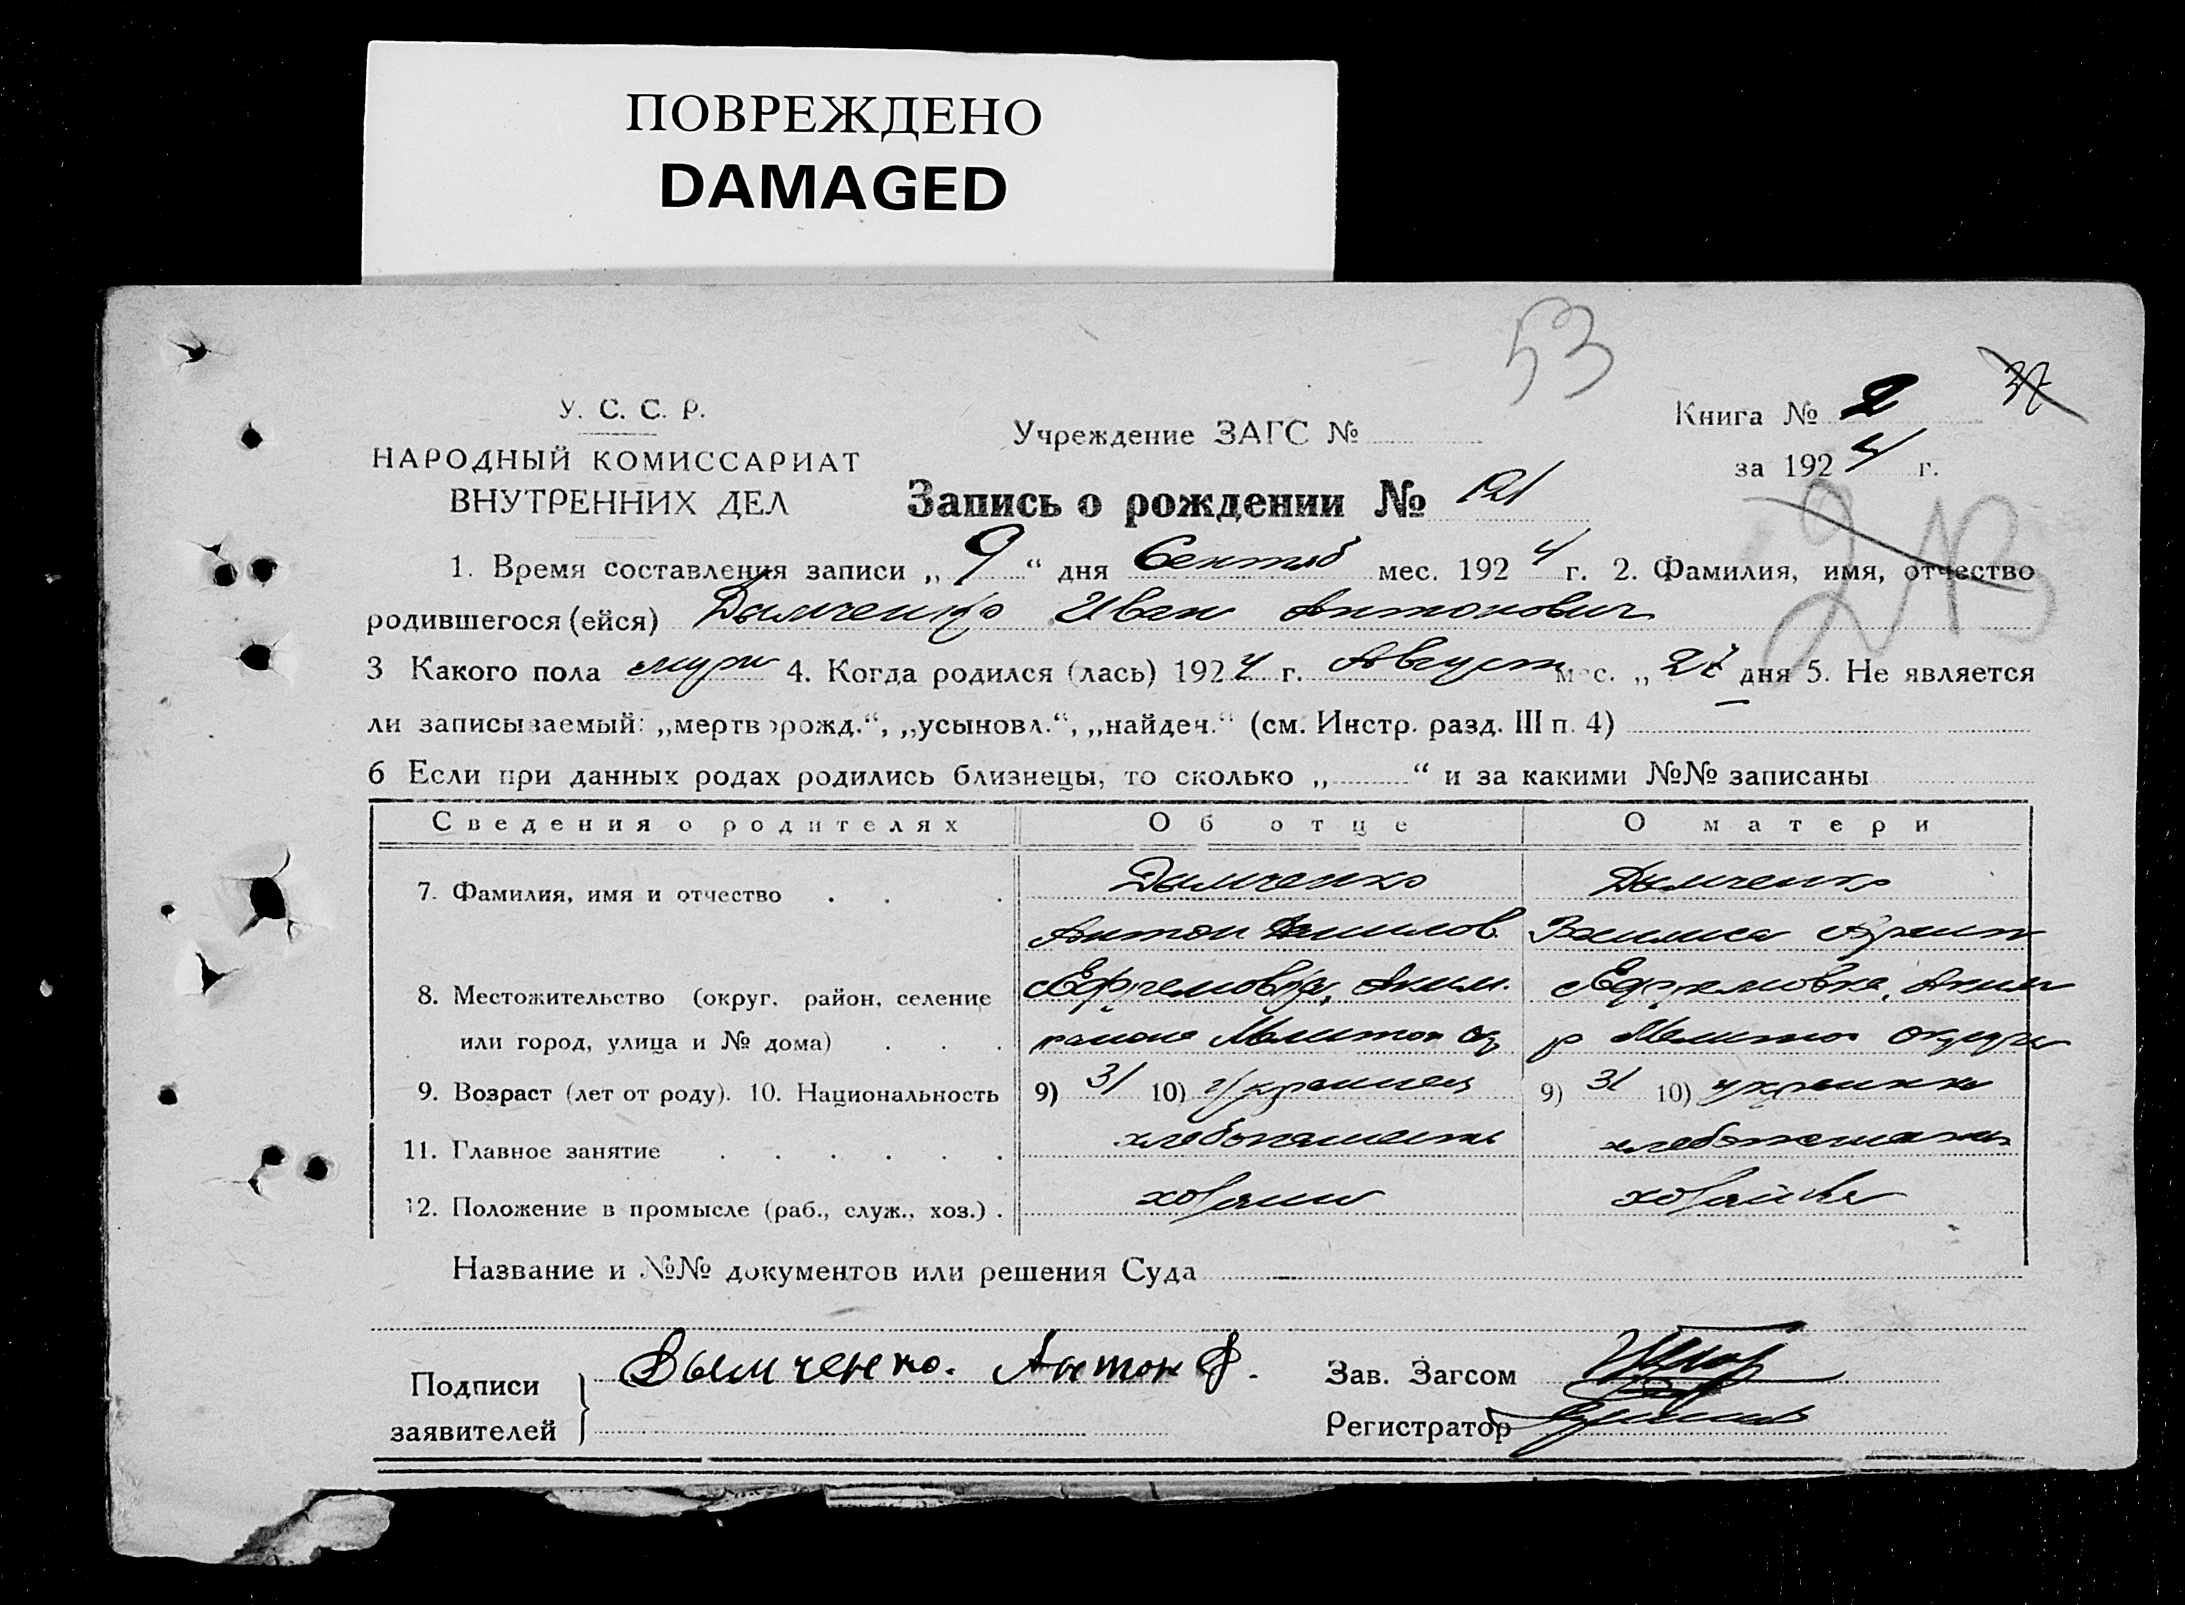 ПОВРЕЖДЕНО
DAMAGED
53
37
У. С. С. Р.
НАРОДНЫЙ КОМИССАРИАТ
ВНУТРЕННИХ ДЕЛ
Учреждение ЗАГС №
Книга № 2
за 1924 г.
Запись о рождении № 121
213
1. Время составления записи „ 9 “ дня Сентяб мес. 1924 г. 2. Фамилия, имя, отчество
родившегося (ейся) Дымченко Иван Антонович
3 Какого пола муж 4. Когда родился (лась) 1924 г. Август мес. „ 27 дня 5. Не является
ли записываемый: „мертворожд.“, „усыновл.“, „найден.“ (см. Инстр. разд. III п. 4) —
6 Если при данных родах родились близнецы, то сколько „ “ и за какими №№ записаны
Сведения о родителях Об отце О матери
7. Фамилия, имя и отчество . . . Дымченко Дымченко
Антон Василиса
8. Местожительство (округ, район, селение Ефремовка, Аким. Ефремовка, Аким
или город, улица и № дома) . . . района Мелитоп ок р Мелитоп округа
9. Возраст (лет от роду). 10. Национальность 9) 31 10) украинец 9) 31 10) украинка
11. Главное занятие . . . . . . хлебопашень хлебопашень
12. Положение в промысле (раб., служ., хоз.) . хозяин хозайка
Название и №№ документов или решения Суда —
Подписи
заявителей
Дымченко. Антон Ф.
Зав. Загсом
Регистратор